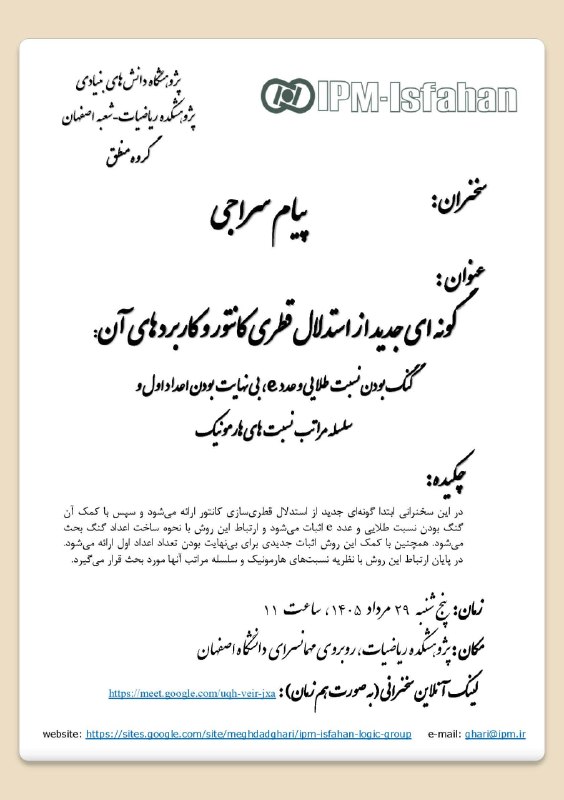 پژوهشگاه دانش‌های بنیادی
پژوهشکده ریاضیات-شعبه اصفهان
گروه منطق
IPM-Isfahan
سخنران:
پیام سراجی
عنوان:
گونه ای جدید از استدلال قطری کانتور و کاربردهای آن:
گنگ بودن نسبت طلایی و عدد e، بی نهایت بودن اعداد اول و
سلسله مراتب نسبت های هارمونیک
چکیده:
در این سخنرانی ابتدا گونه‌ای جدید از استدلال قطری‌سازی کانتور ارائه می‌شود و سپس با کمک آن
گنگ بودن نسبت طلایی و عدد e اثبات می‌شود و ارتباط این روش با نحوه ساخت اعداد گنگ بحث
می‌شود. همچنین با کمک این روش اثبات جدیدی برای بی‌نهایت بودن تعداد اعداد اول ارائه می‌شود.
در پایان ارتباط این روش با نظریه نسبت‌های هارمونیک و سلسله مراتب آنها مورد بحث قرار می‌گیرد.
زمان: پنج شنبه ۲۹ مرداد ۱۴۰۵، ساعت ۱۱
مکان: پژوهشکده ریاضیات، روبروی مهمانسرای دانشگاه اصفهان
لینک آنلاین سخنرانی (به صورت هم زمان): https://meet.google.com/uqh-veir-jxa
website: https://sites.google.com/site/meghdadghari/ipm-isfahan-logic-group e-mail: ghari@ipm.ir